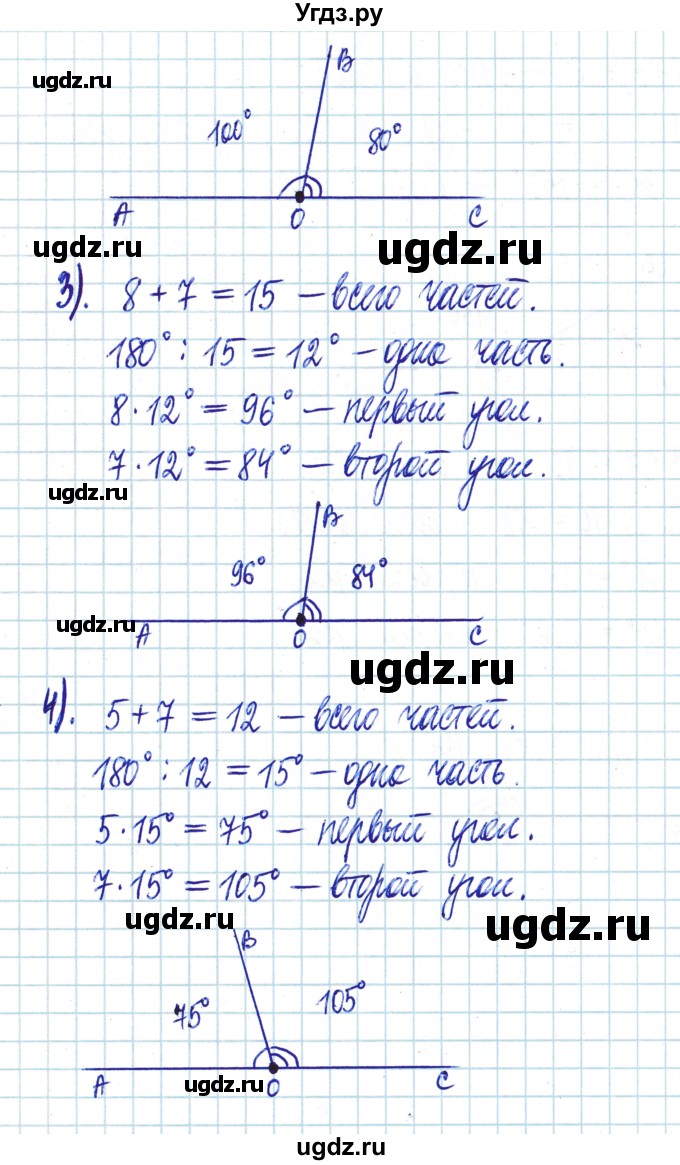 Угдз.ру
ugdz.ru
B
100° 80°
A O C
ugdz.ru ugdz.ru
3). 8 + 7 = 15 – всего частей.
180° : 15 = 12° – одна часть.
8 · 12° = 96° – первый угол.
7 · 12° = 84° – второй угол.
ugdz.ru
B
96° 84°
ugdz.ru
A O C
ugdz.ru
4). 5 + 7 = 12 – всего частей.
180° : 12 = 15° – одна часть.
5 · 15° = 75° – первый угол.
7 · 15° = 105° – второй угол.
ugdz.ru ugdz.ru
B
75° 105°
A ugdz.ru O C
ugdz.ru